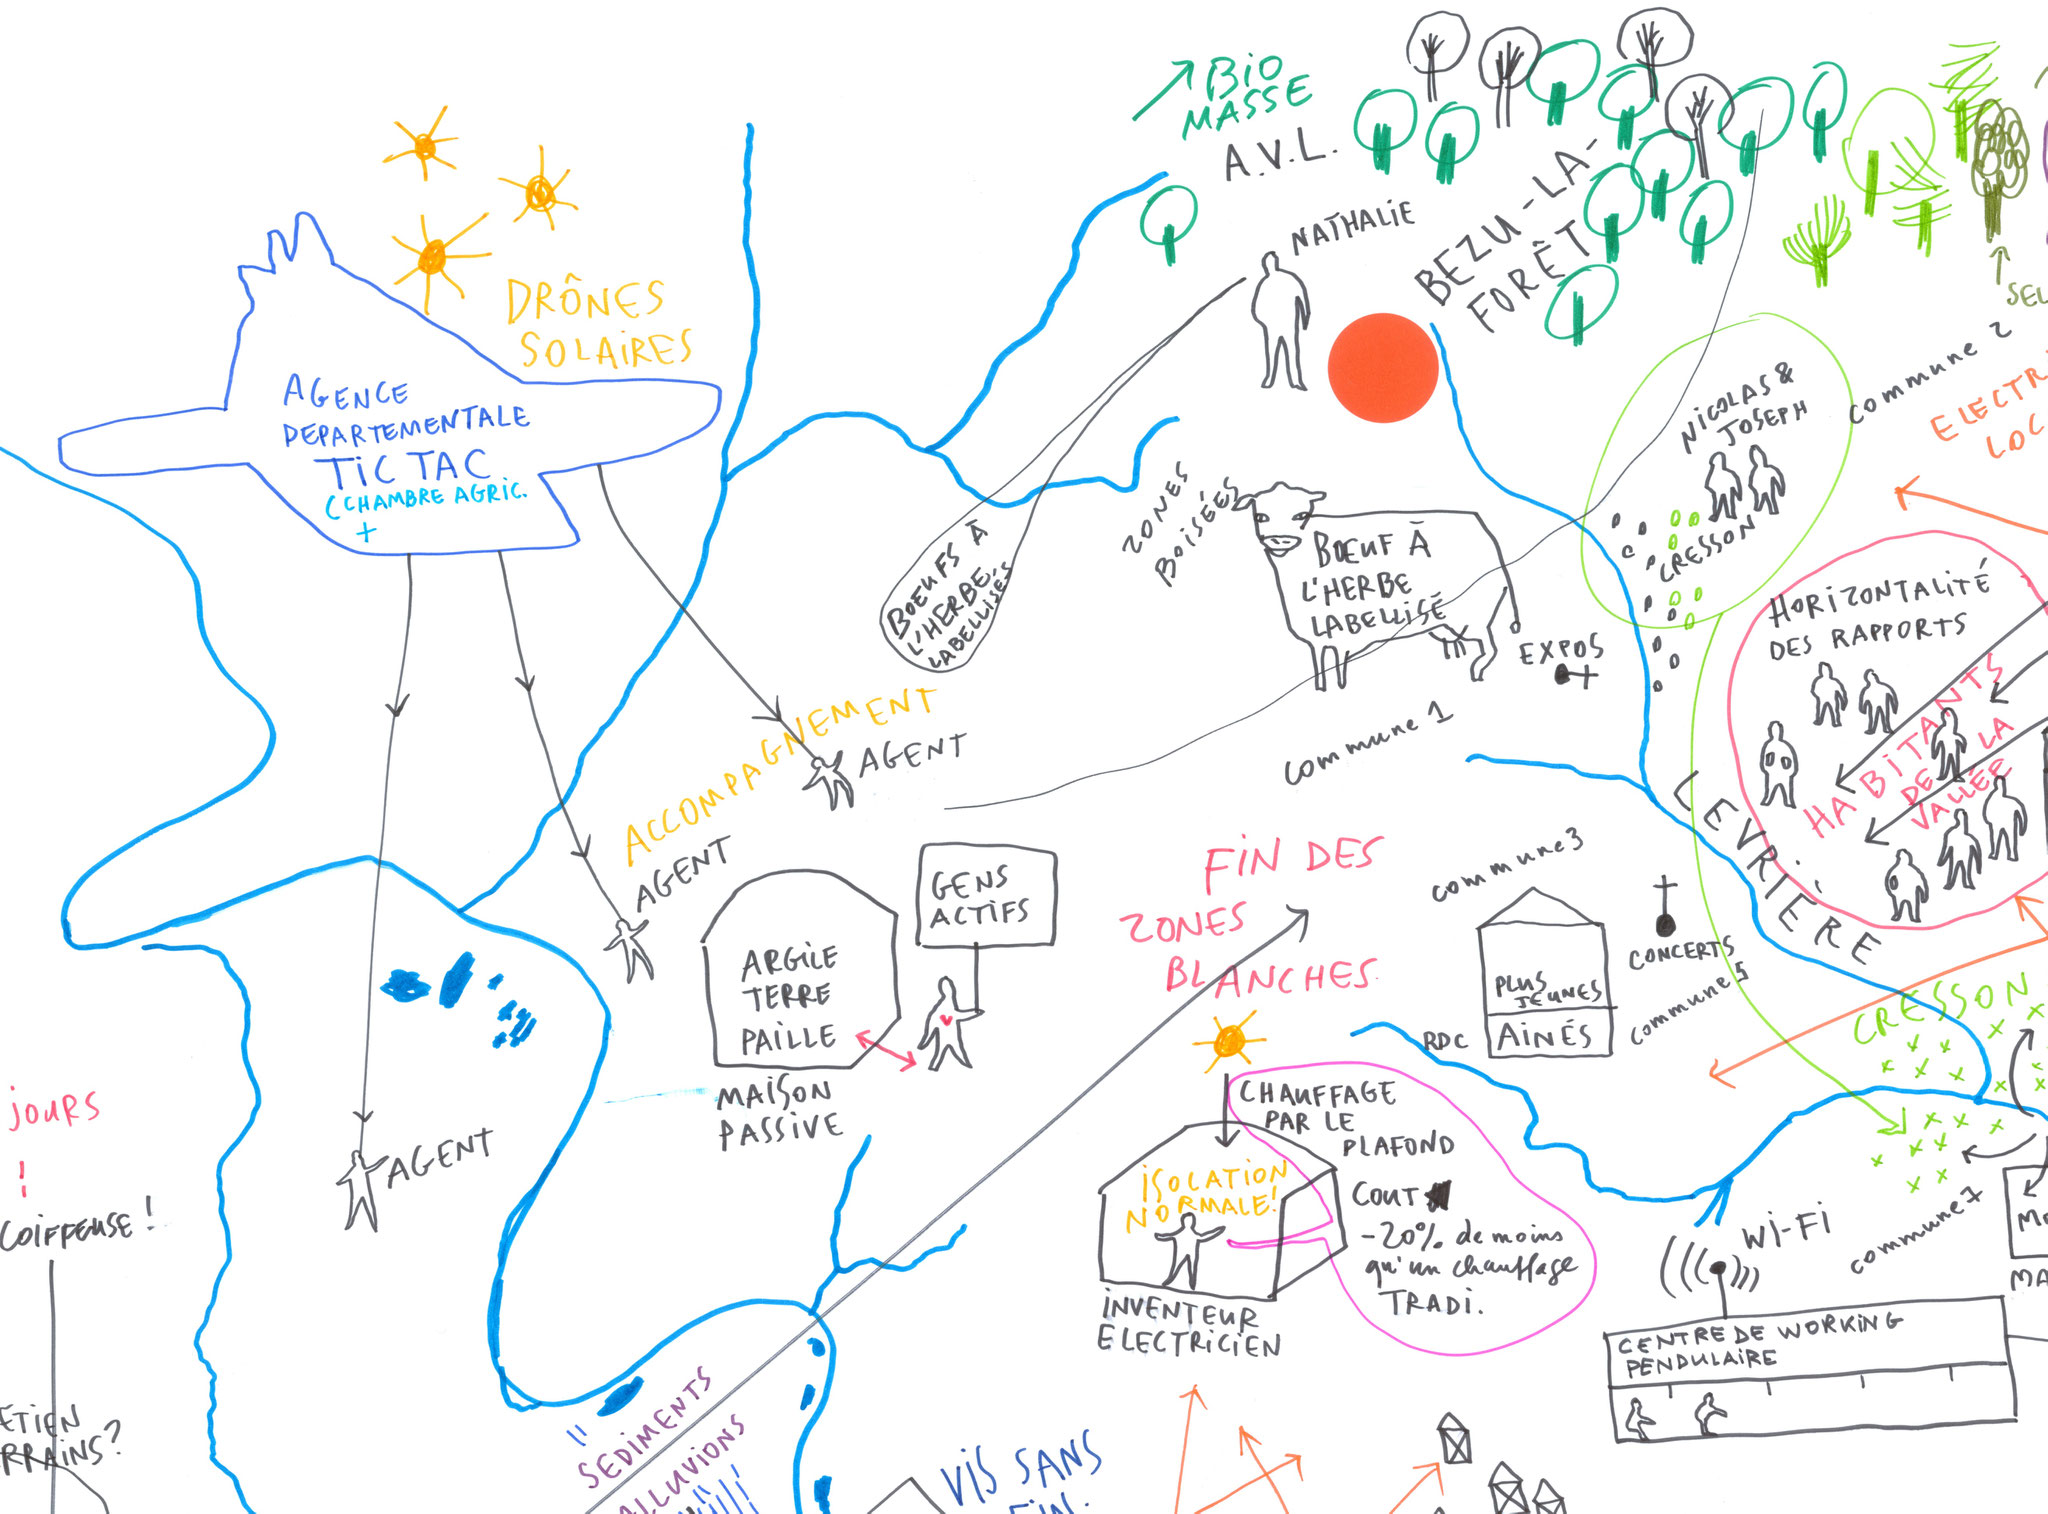 BIO
MASSE
A.V.L.
NATHALIE
BEZU-LA-
FORÊT
DRÔNES
SOLAIRES
AGENCE
DEPARTEMENTALE
TIC TAC
(CHAMBRE AGRIC.
+
BOEUFS À
L'HERBE
LABELLISÉS
ZONES
BOISÉES
BOEUF À
L'HERBE
LABELLISÉ
EXPOS
NICOLAS &
JOSEPH
CRESSON
commune 2
HORIZONTALITÉ
DES RAPPORTS
HABITANTS
DE LA
VALLÉE
commune 1
LEVRIÈRE
ACCOMPAGNEMENT
AGENT
AGENT
AGENT
ARGILE
TERRE
PAILLE
MAISON
PASSIVE
GENS
ACTIFS
FIN DES
ZONES
BLANCHES.
commune 3
PLUS
JEUNES
RDC
AINÉS
CONCERTS
commune 5
CRESSON
CHAUFFAGE
PAR LE
PLAFOND
ISOLATION
NORMALE!
COUT
-20% de moins
qu'un chauffage
TRADI.
INVENTEUR
ELECTRICIEN
WI-FI
commune 7
CENTRE DE WORKING
PENDULAIRE
jOURS
!
COIFFEUSE!
SEDIMENTS
ALLUVIONS
VIS SANS
FIN.